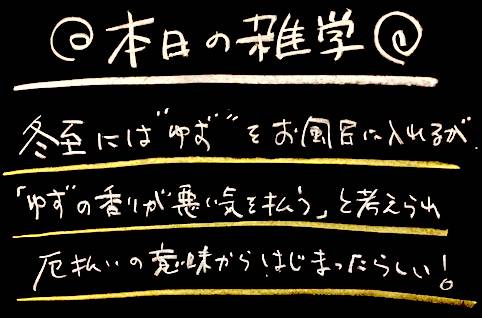 @本日の雑学@
冬至には"ゆず"をお風呂に入れるが
「ゆず"の香りが悪い気を払う」と考えられ
厄払いの意味からはじまったらしい!